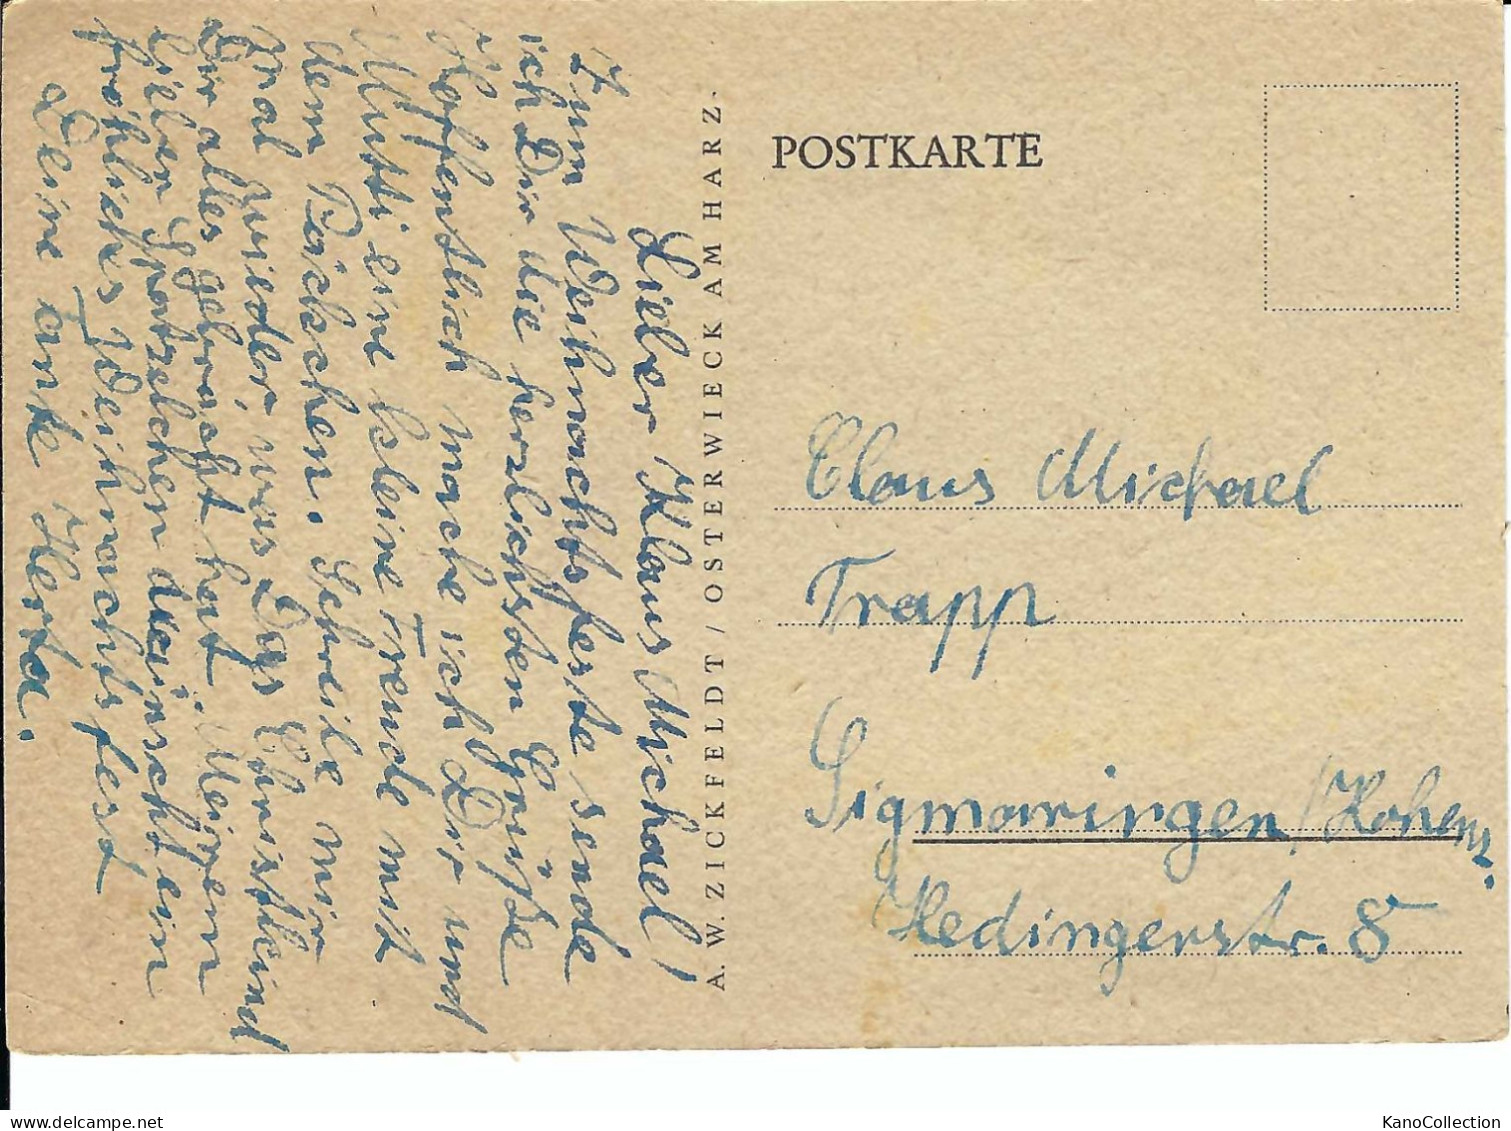 Lieber Klaus Michael!
Zum Weihnachtsfeste sende
ich Dir die herzlichsten Grüße
Hoffentlich mache ich Dir und
Mutti eine kleine Freude mit
dem Päckchen. Schreibe mir
mal wieder, was Das Christkind
Dir alles gebracht hat. Meinem
lieben Spatzelchen ein
fröhliches Weihnachtsfest
Deine Tante Herta.
A. W. ZICKFELDT / OSTERWIECK AM HARZ.
POSTKARTE
Claus Michael
Trapp
Sigmaringen/Hohenz.
Hedingerstr. 8
KanoCollection
delcampe.net